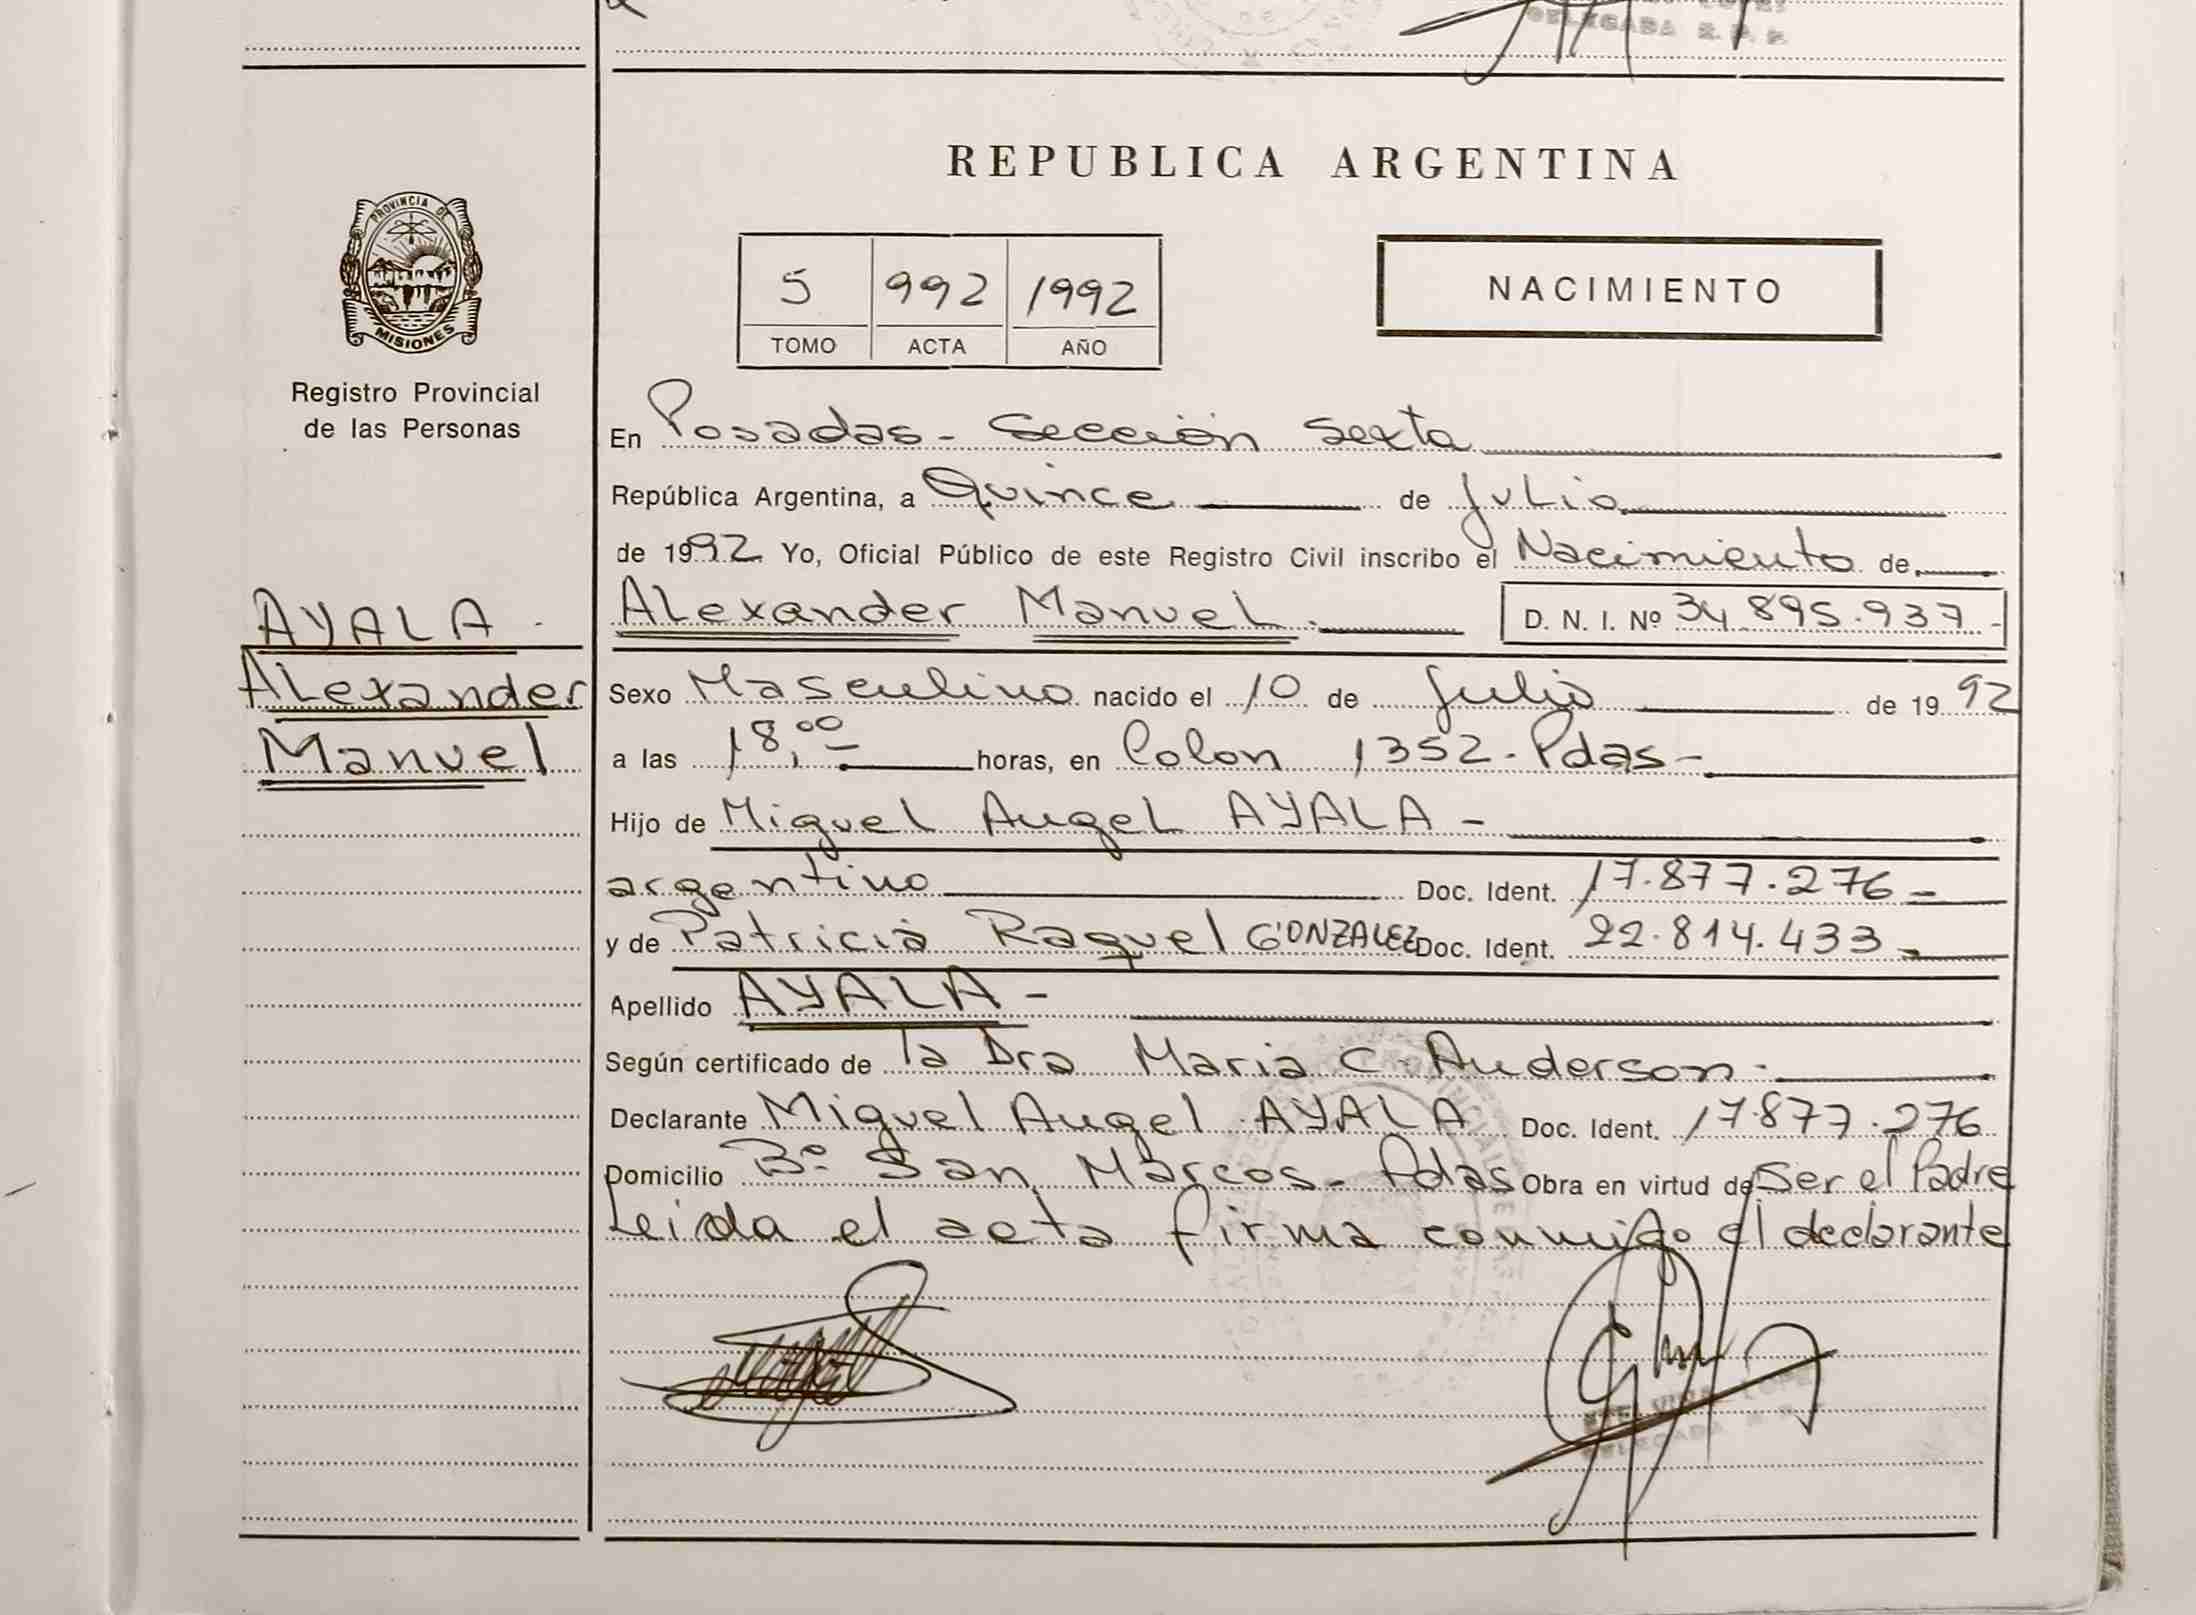 DELEGADA R. P. P.
PROVINCIA DE
MISIONES
Registro Provincial
de las Personas
AYALA -
ALexander
Manuel
REPUBLICA ARGENTINA
5 992 1992
TOMO ACTA AÑO
NACIMIENTO
En Posadas - Sección Sexta
República Argentina, a Quince de Julio
de 1992 Yo, Oficial Público de este Registro Civil inscribo el Nacimiento de
ALexander Manuel. D. N. I. Nº 34.895.937-
Sexo Masculino nacido el 10 de Julio de 1992
a las 18,00 horas, en Colon 1352 - Pdas -
Hijo de Miguel Angel AYALA -
argentino Doc. Ident. 17.877.276 -
y de Patricia Raquel GONZALEZ Doc. Ident. 22.814.433 -
Apellido AYALA -
Según certificado de la Dra Maria C. Anderson -
Declarante Miguel Angel AYALA Doc. Ident. 17.877.276
Domicilio Bº San Marcos - Pdas Obra en virtud de Ser el Padre
Leida el acta firma conmigo el declarante
LOPEZ
DELEGADA R. P.